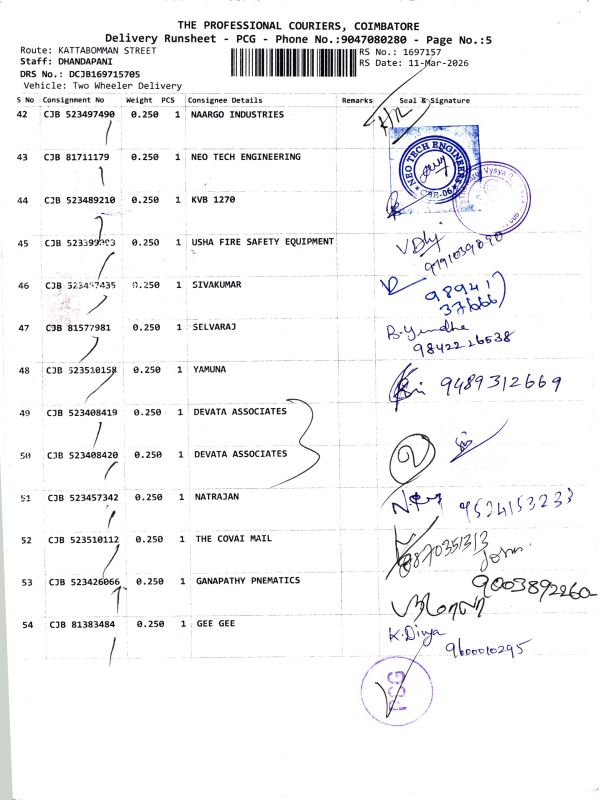 THE PROFESSIONAL COURIERS, COIMBATORE
Delivery Runsheet - PCG - Phone No.:9047080280 - Page No.:5
Route: KATTABOMMAN STREET
RS No.: 1697157
Staff: DHANDAPANI
RS Date: 11-Mar-2026
DRS No.: DCJB169715705
Vehicle: Two Wheeler Delivery
S No Consignment No Weight PCS Consignee Details Remarks Seal & Signature
42 CJB 523497490 0.250 1 NAARGO INDUSTRIES
43 CJB 81711179 0.250 1 NEO TECH ENGINEERING
NEO TECH ENGINEERS
CBE-06
44 CJB 523489210 0.250 1 KVB 1270
Vysya
45 CJB 0.250 1 USHA FIRE SAFETY EQUIPMENT
46 CJB 0.250 1 SIVAKUMAR
98941
37666
47 CJB 81577981 0.250 1 SELVARAJ
9842226538
48 CJB 523510158 0.250 1 YAMUNA 9489312669
49 CJB 523408419 0.250 1 DEVATA ASSOCIATES
50 CJB 523408420 0.250 1 DEVATA ASSOCIATES
51 CJB 523457342 0.250 1 NATRAJAN 9524153233
52 CJB 523510112 0.250 1 THE COVAI MAIL
53 CJB 523426066 0.250 1 GANAPATHY PNEMATICS
54 CJB 81383484 0.250 1 GEE GEE K.Divya
9600010295
PCG